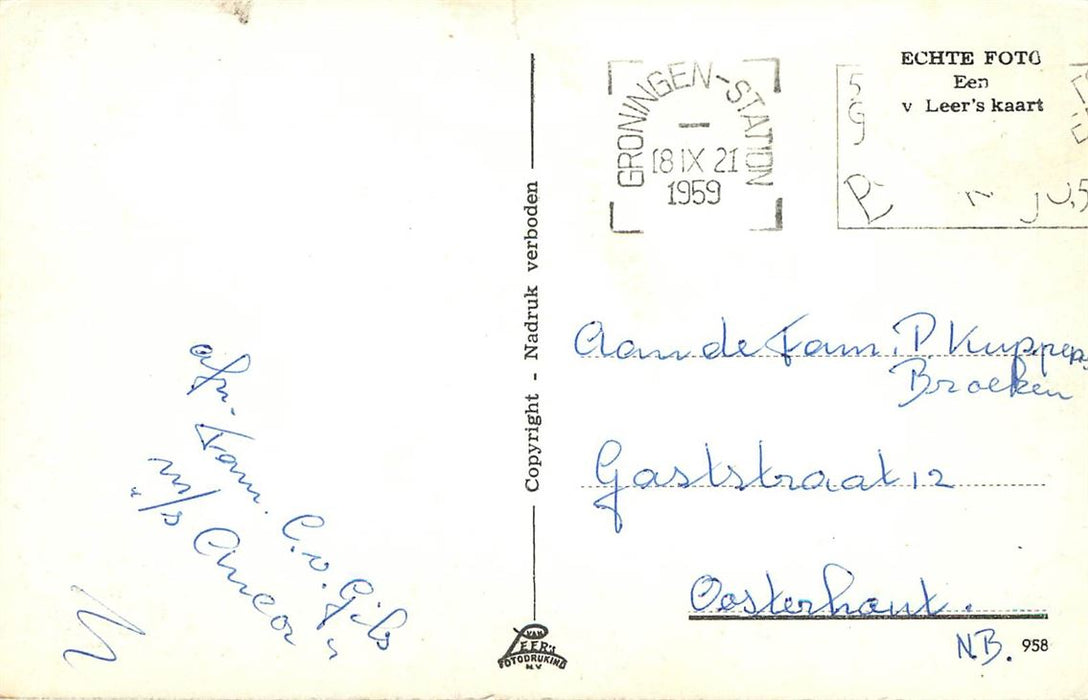 afz. Fam. C. v. Gils
m/s "Ancor"
Copyright - Nadruk verboden
VAN
LEER'S
FOTODRUKIND
N.V
GRONINGEN-STATION
18 IX 21
1959
ECHTE FOTO
Een
v Leer's kaart
Aan de Fam. P Kuppens
Broeken
Gaststraat 12
Oosterhout.
N.B.
958